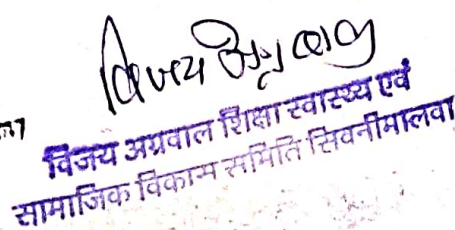 विजय अग्रवाल
विजय अग्रवाल शिक्षा स्वास्थ्य एवं
सामाजिक विकास समिति सिवनीमालवा